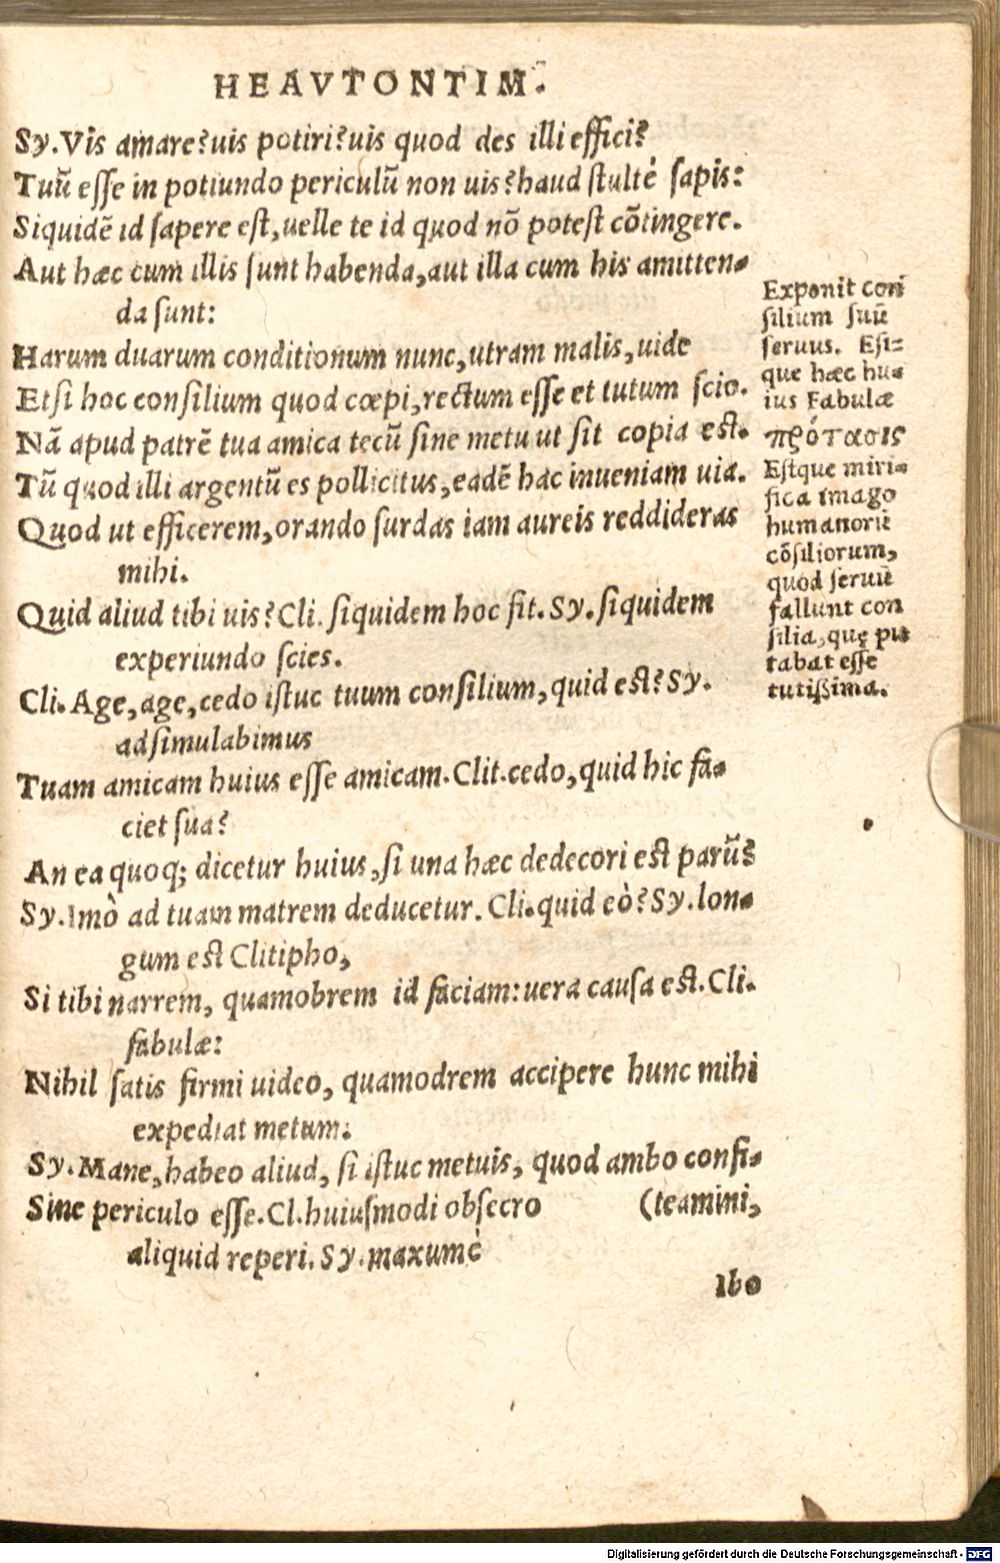 HEAVTONTIM.
Sy. Vis amare? uis potiri? uis quod des illi effici?
Tuũ esse in potiundo periculũ non uis? haud stultè sapis:
Siquidẽ id sapere est, uelle te id quod nõ potest cõtingere.
Aut hæc cum illis sunt habenda, aut illa cum his amitten-
da sunt:
Harum duarum conditionum nunc, utram malis, uide
Etsi hoc consilium quod cœpi, rectum esse et tutum scio.
Nã apud patrẽ tua amica tecũ sine metu ut sit copia est.
Tũ quod illi argentũ es pollicitus, eadẽ hac inueniam uia.
Quod ut efficerem, orando surdas iam aureis reddideras
mihi.
Quid aliud tibi uis? Cli. siquidem hoc fit. Sy. siquidem
experiundo scies.
Cli. Age, age, cedo istuc tuum consilium, quid est? Sy.
adsimulabimus
Tuam amicam huius esse amicam. Clit. cedo, quid hic fa-
ciet sua?
An ea quoq; dicetur huius, si una hæc dedecori est parũ?
Sy. Imò ad tuam matrem deducetur. Cli. quid eò? Sy. lon-
gum est Clitipho,
Si tibi narrem, quamobrem id faciam: uera causa est. Cli.
fabulæ:
Nihil satis firmi uideo, quamodrem accipere hunc mihi
expediat metum.
Sy. Mane, habeo aliud, si istuc metuis, quod ambo confi-
Sine periculo esse. Cl. huiusmodi obsecro (teamini,
aliquid reperi. Sy. maxumè
Ibo
Exponit con
silium suũ
seruus. Esi-
que hæc hu-
ius Fabulæ
πρότασις
Estque miri-
fica imago
humanorũ
cõsiliorum,
quod seruũ
fallunt con
silia, quę pu
tabat esse
tutißima.
Digitalisierung gefördert durch die Deutsche Forschungsgemeinschaft - DFG